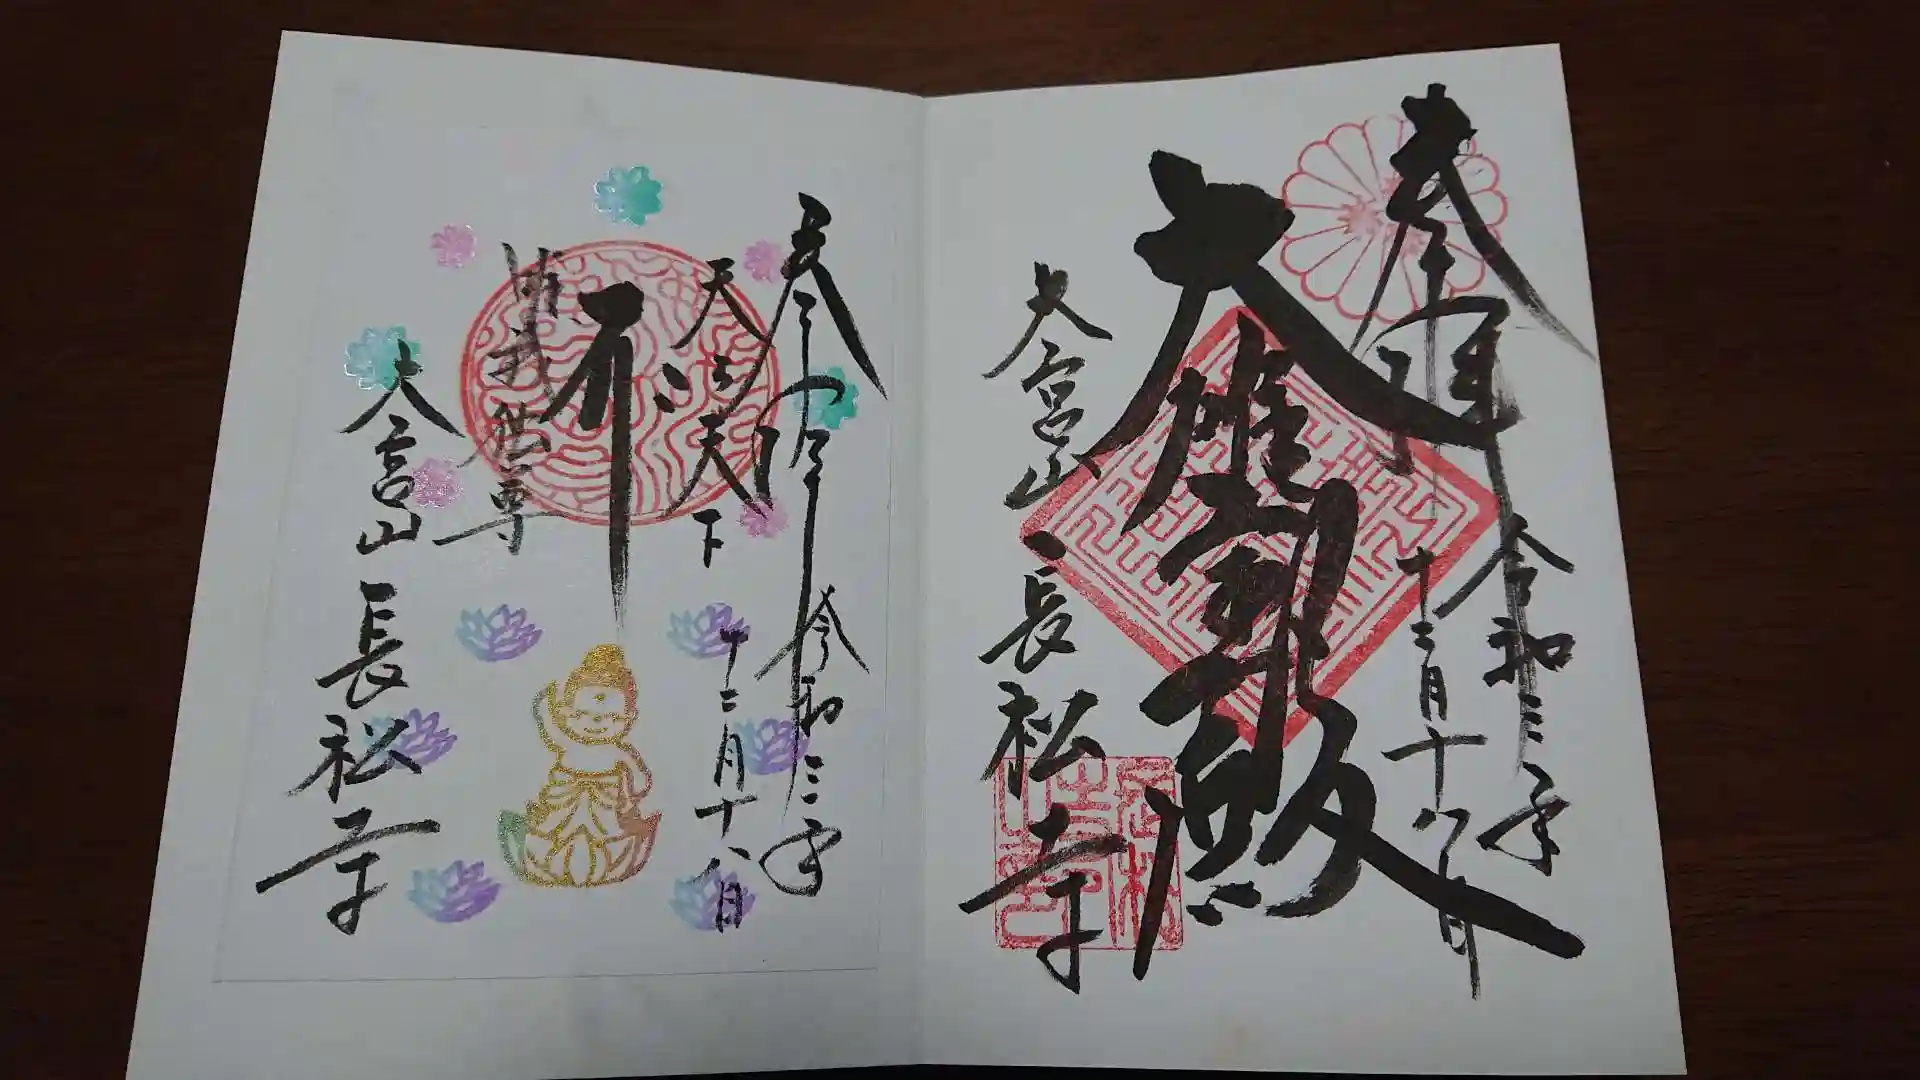 奉拝
令和三年
十二月十八日
大雄寳殿
大宮山
長松寺
奉拝
令和三年
天上天下
十二月十八日
唯我独尊
大宮山
長松寺